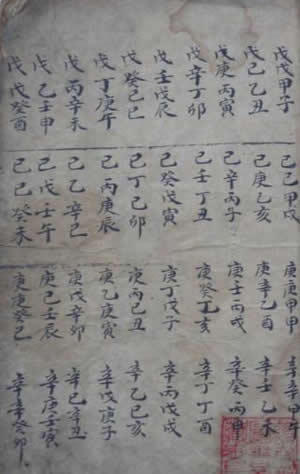 戊戊甲子
戊己乙丑
戊庚丙寅
戊辛丁卯
戊壬戊辰
戊癸己巳
戊丁庚午
戊丙辛未
戊乙壬申
戊戊癸酉
己己甲戌
己庚乙亥
己辛丙子
己壬丁丑
己癸戊寅
己丁己卯
己丙庚辰
己乙辛巳
己戊壬午
己己癸未
庚庚甲申
庚辛乙酉
庚壬丙戌
庚癸丁亥
庚丁戊子
庚丙己丑
庚乙庚寅
庚戊辛卯
庚己壬辰
庚庚癸巳
辛辛甲午
辛壬乙未
辛癸丙申
辛丁丁酉
辛丙戊戌
辛乙己亥
辛戊庚子
辛己辛丑
辛庚壬寅
辛辛癸卯